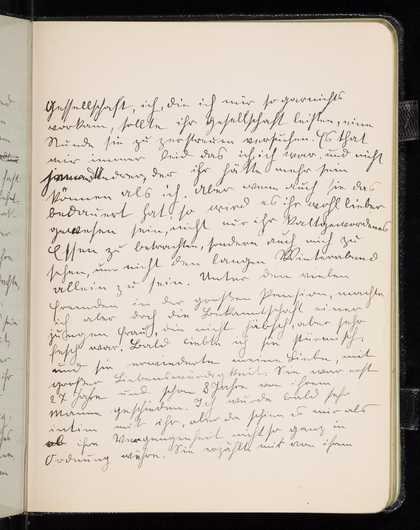 Gesellschaft, ich, die ich mir so garnichts
vorkam, sollte ihr Gesellschaft leisten, eine
Stunde sie zu zerstreuen versuchen. Es that
mir immer leid das ich, ich war, und nicht
jemand Anderer, der ihr hätte mehr sein
können als ich. Aber wenn auch sie das
bedauert hat so wird es ihr wohl lieber
gewesen sein, nicht nur ihr kaltgewordenes
Essen zu betrachten, sondern auch mich zu
sehen, um nicht den langen Winterabend
allein zu sein. Unter den vielen
Fremden in der großen Pension, machte
ich aber doch die Bekanntschaft einer
jungen Frau, die nicht hübsch, aber sehr
fesch war. Bald liebte ich sie stürmisch,
und sie erwiederte meine Liebe, mit
großer Liebenswürdigkeit. Sie war erst
27 Jahre und schon 8 Jahre von ihrem
Manne geschieden. Ich wurde bald sehr
intim mit ihr, aber da schien es mir als
ob ihre Vergangenheit nicht so ganz in
Ordnung wäre. Sie erzählte mir von ihrem